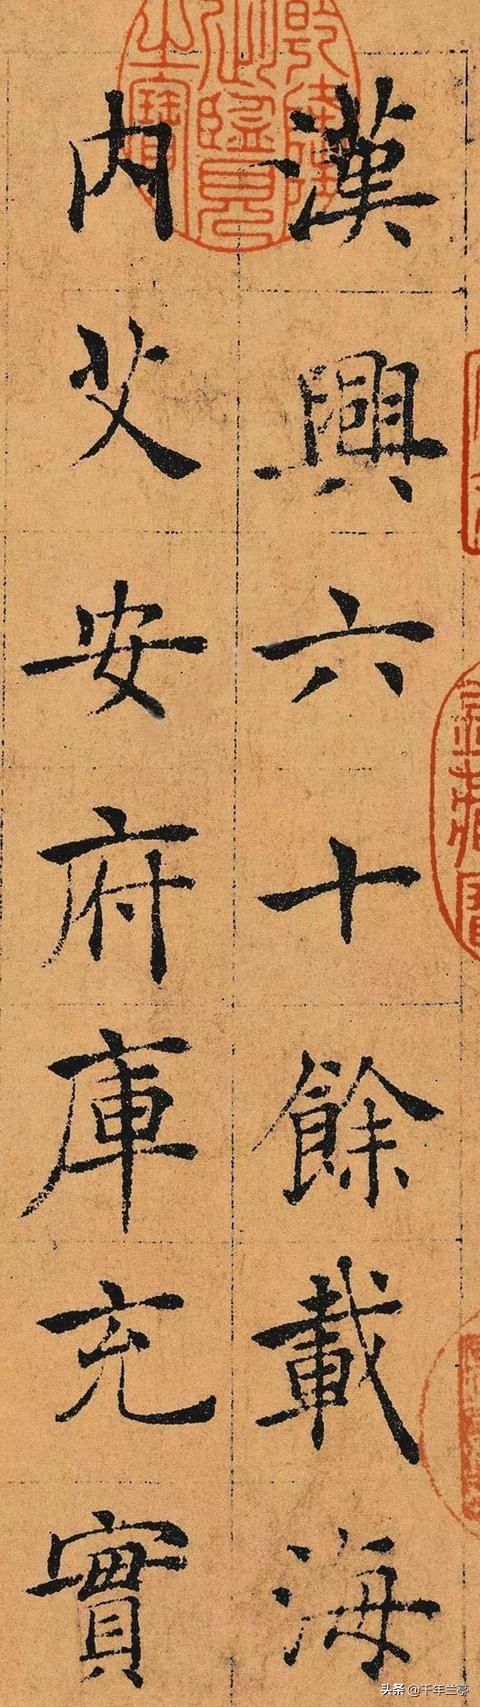 漢興六十餘載海
內艾安府庫充實
頭条 @千年兰亭